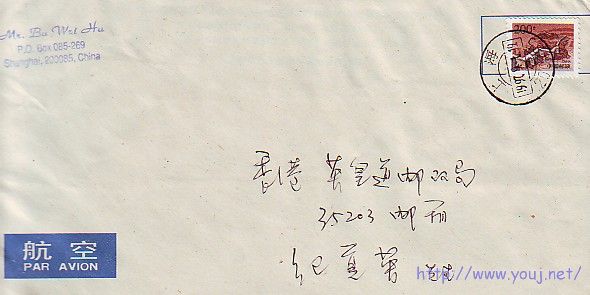 Mr. Bu Wei Hu
P.O. Box 085-269
Shanghai, 200085, China
200
上海
香港 英皇道邮政局
35203 邮箱
纪夏 先生
航空
PAR AVION
http://www.youj.net/